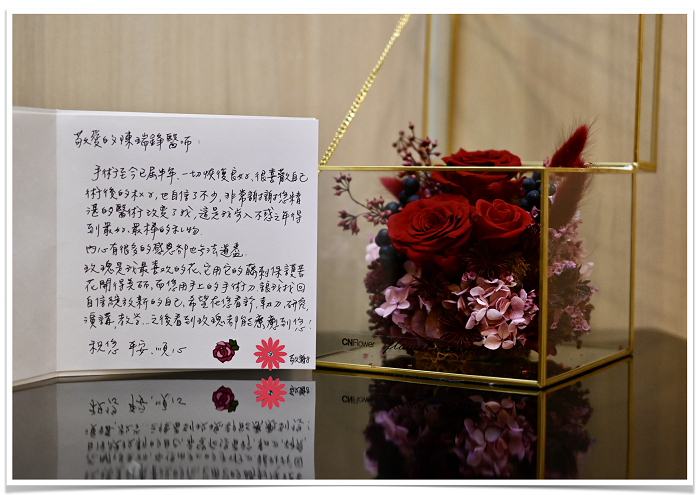 敬愛的陳瑞鋒醫師:
手術至今已屆半年,一切恢復良好,很喜歡自己
術後的,也自信了不少,非常謝謝您精
湛的醫術改變了我,這是我步入不惑之年得
到最好、最棒的礼物。
內心有很多的感恩卻也道盡
玫瑰是我最喜歡的花,它用它的保護著
花開得美丽,而您用手上的手術刀讓我找回
自信綻放新的自己,希望在您看診、動刀、研究、
演講、教学…之後看到玫瑰都能療癒到您!
祝您 平安、順心
敬上
CNFlower